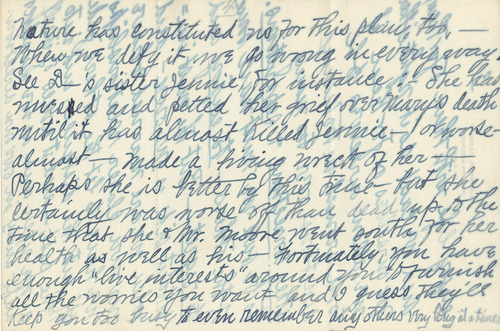 Nature has constituted us for this plan, too, —
When we defy it we go wrong in every way.
See D—'s sister Jennie, for instance! She has
nursed and petted her grief over Mary's death
until it has almost killed Jennie — or worse
almost — made a living wreck of her —
Perhaps she is better by this time — but she
certainly was worse off than dead up to the
time that she & Mr. Moore went south for her
health as well as his — Fortunately, you have
enough "live interests" around you to furnish
all the worries you want and I guess they'll
keep you too busy to even remember any others very long at a time